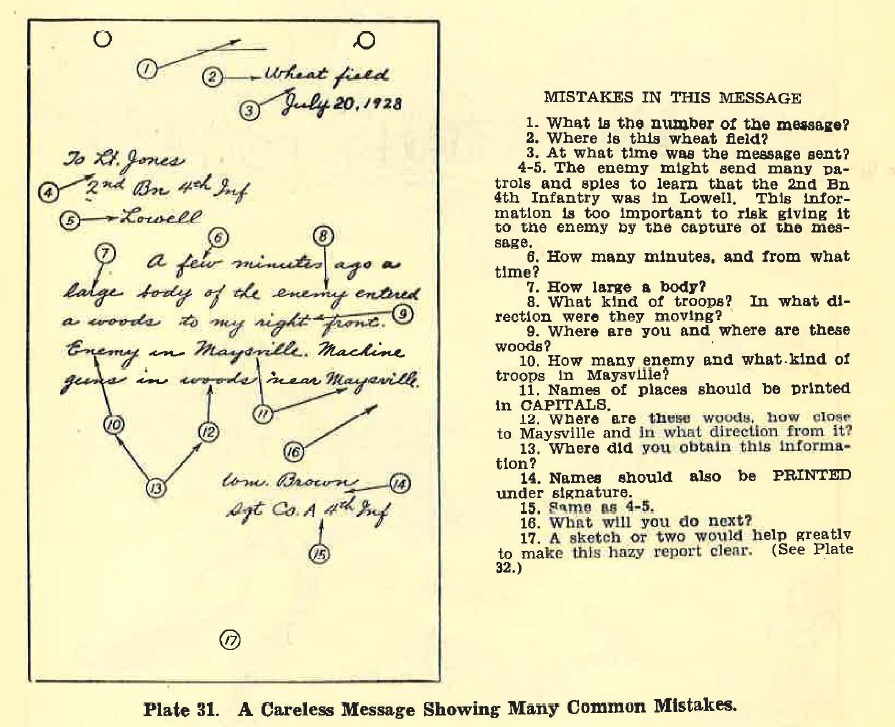 1
2 Wheat field
3 July 20, 1928
To Lt. Jones
4 2nd Bn 4th Inf
5 Lowell
7 6 8
A few minutes ago a
large body of the enemy entered
a woods to my right front. 9
Enemy in Maysville. Machine
guns in woods near Maysville.
10 12 11
16
13 Wm. Brown 14
Sgt Co. A 4th Inf
15
17
MISTAKES IN THIS MESSAGE
1. What is the number of the message?
2. Where is this wheat field?
3. At what time was the message sent?
4-5. The enemy might send many pa-
trols and spies to learn that the 2nd Bn
4th Infantry was in Lowell. This infor-
mation is too important to risk giving it
to the enemy by the capture of the mes-
sage.
6. How many minutes, and from what
time?
7. How large a body?
8. What kind of troops? In what di-
rection were they moving?
9. Where are you and where are these
woods?
10. How many enemy and what kind of
troops in Maysville?
11. Names of places should be printed
in CAPITALS.
12. Where are these woods, how close
to Maysville and in what direction from it?
13. Where did you obtain this informa-
tion?
14. Names should also be PRINTED
under signature.
15. Same as 4-5.
16. What will you do next?
17. A sketch or two would help greatly
to make this hazy report clear. (See Plate
32.)
Plate 31. A Careless Message Showing Many Common Mistakes.